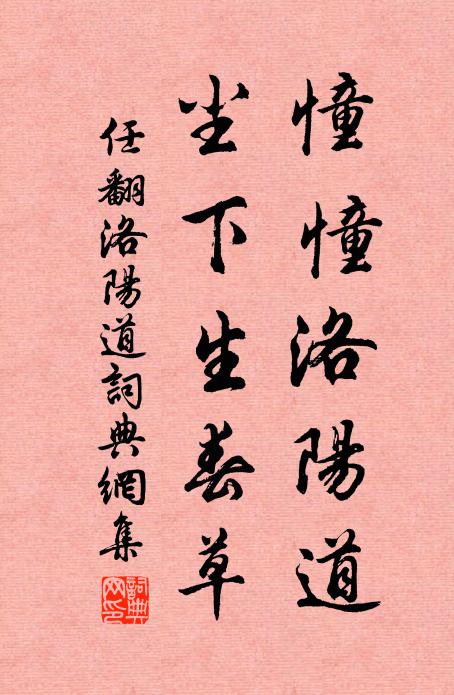 憧憧洛陽道
尘下生春草
任翻洛陽道詞典網集
詞典网印